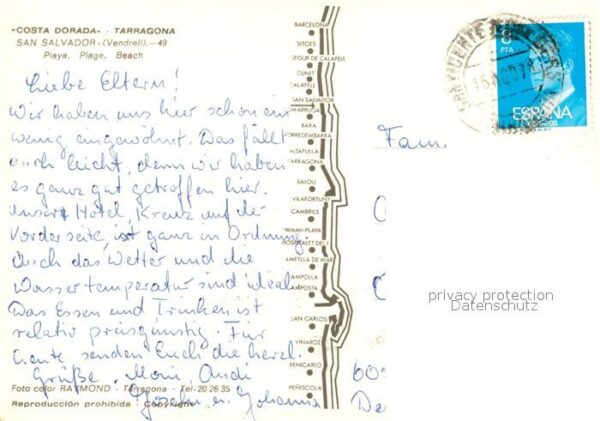 «COSTA DORADA» - TARRAGONA
SAN SALVADOR - (Vendrell).—49
Playa. Plage. Beach
Liebe Eltern!
Wir haben uns hier schon ein
wenig eingewöhnt. Das fällt
auch leicht, denn wir haben
es ganz gut getroffen hier.
Unser Hotel, Kreuz auf der
Vorderseite, ist ganz in Ordnung.
Auch das Wetter und die
Wassertemperatur sind ideal.
Das Essen und Trinken ist
relativ preisgünstig. Für
heute senden Euch die herzl.
Grüße Moni, Andi
Joachim u. Johanna
Foto color RAYMOND - Tarragona - Tel. 20 26 35
Reproducción prohibida - Copyright
BARCELONA
SITGES
SEGUR DE CALAFELL
CUNIT
CALAFELL
SAN SALVADOR
COMARRUGA
BARA
TORREDEMBARRA
ALTAFULLA
TARRAGONA
SALOU
VILAFORTUNY
CAMBRILS
MIAMI-PLAYA
HOSPITALET DEL I.
AMETLLA DE MAR
AMPOLLA
AMPOSTA
SAN CARLOS
VINAROZ
BENICARLO
PEÑISCOLA
8
PTA
ESPAÑA
Fam.
privacy protection
Datenschutz